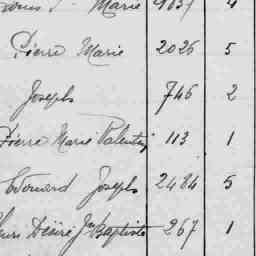 Marie 4
Pierre Marie 2026 5
Joseph 746 2
Pierre Marie Valentin 113 1
Edouard Joseph 2484 5
Henri Désiré Jn Baptiste 267 1